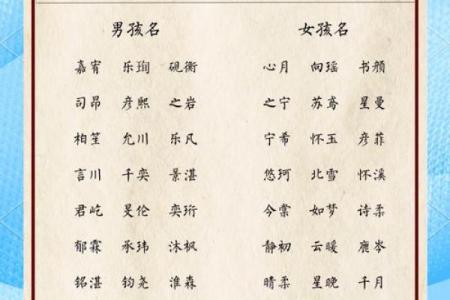 男孩名 女孩名
嘉宥 乐珣 砚衡 心月 向瑶 书颜
司昂 彦熙 之岩 之宁 苏鸢 星曼
柏笙 允川 乐凡 宁希 怀玉 彦菲
言川 千奕 景湛 悠珂 北雪 怀溪
君屹 旻伦 奕珩 今棠 如梦 诗柔
郁霖 承玮 沐枫 静初 云暖 鹿岑
铭湛 钧尧 淮森 晴柔 星晚 千月